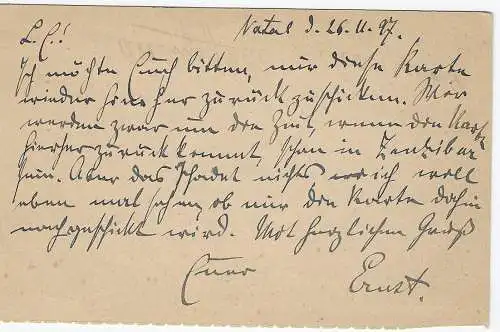 Natal d. 26.11.97.
L. C.!
Ich möchte Euch bitten, mir diese Karte
wieder hierher zurückzuschicken. Wir
werden zwar um den Zeit, wenn den Karte
hierher zurückkommt, schon in Zanzibar
sein. Aber das schadet nichts ich will
eben mal sehen, ob mir den Karte dahin
nachgeschickt wird. Mit herzlichem Gruß
Euer
Ernst.